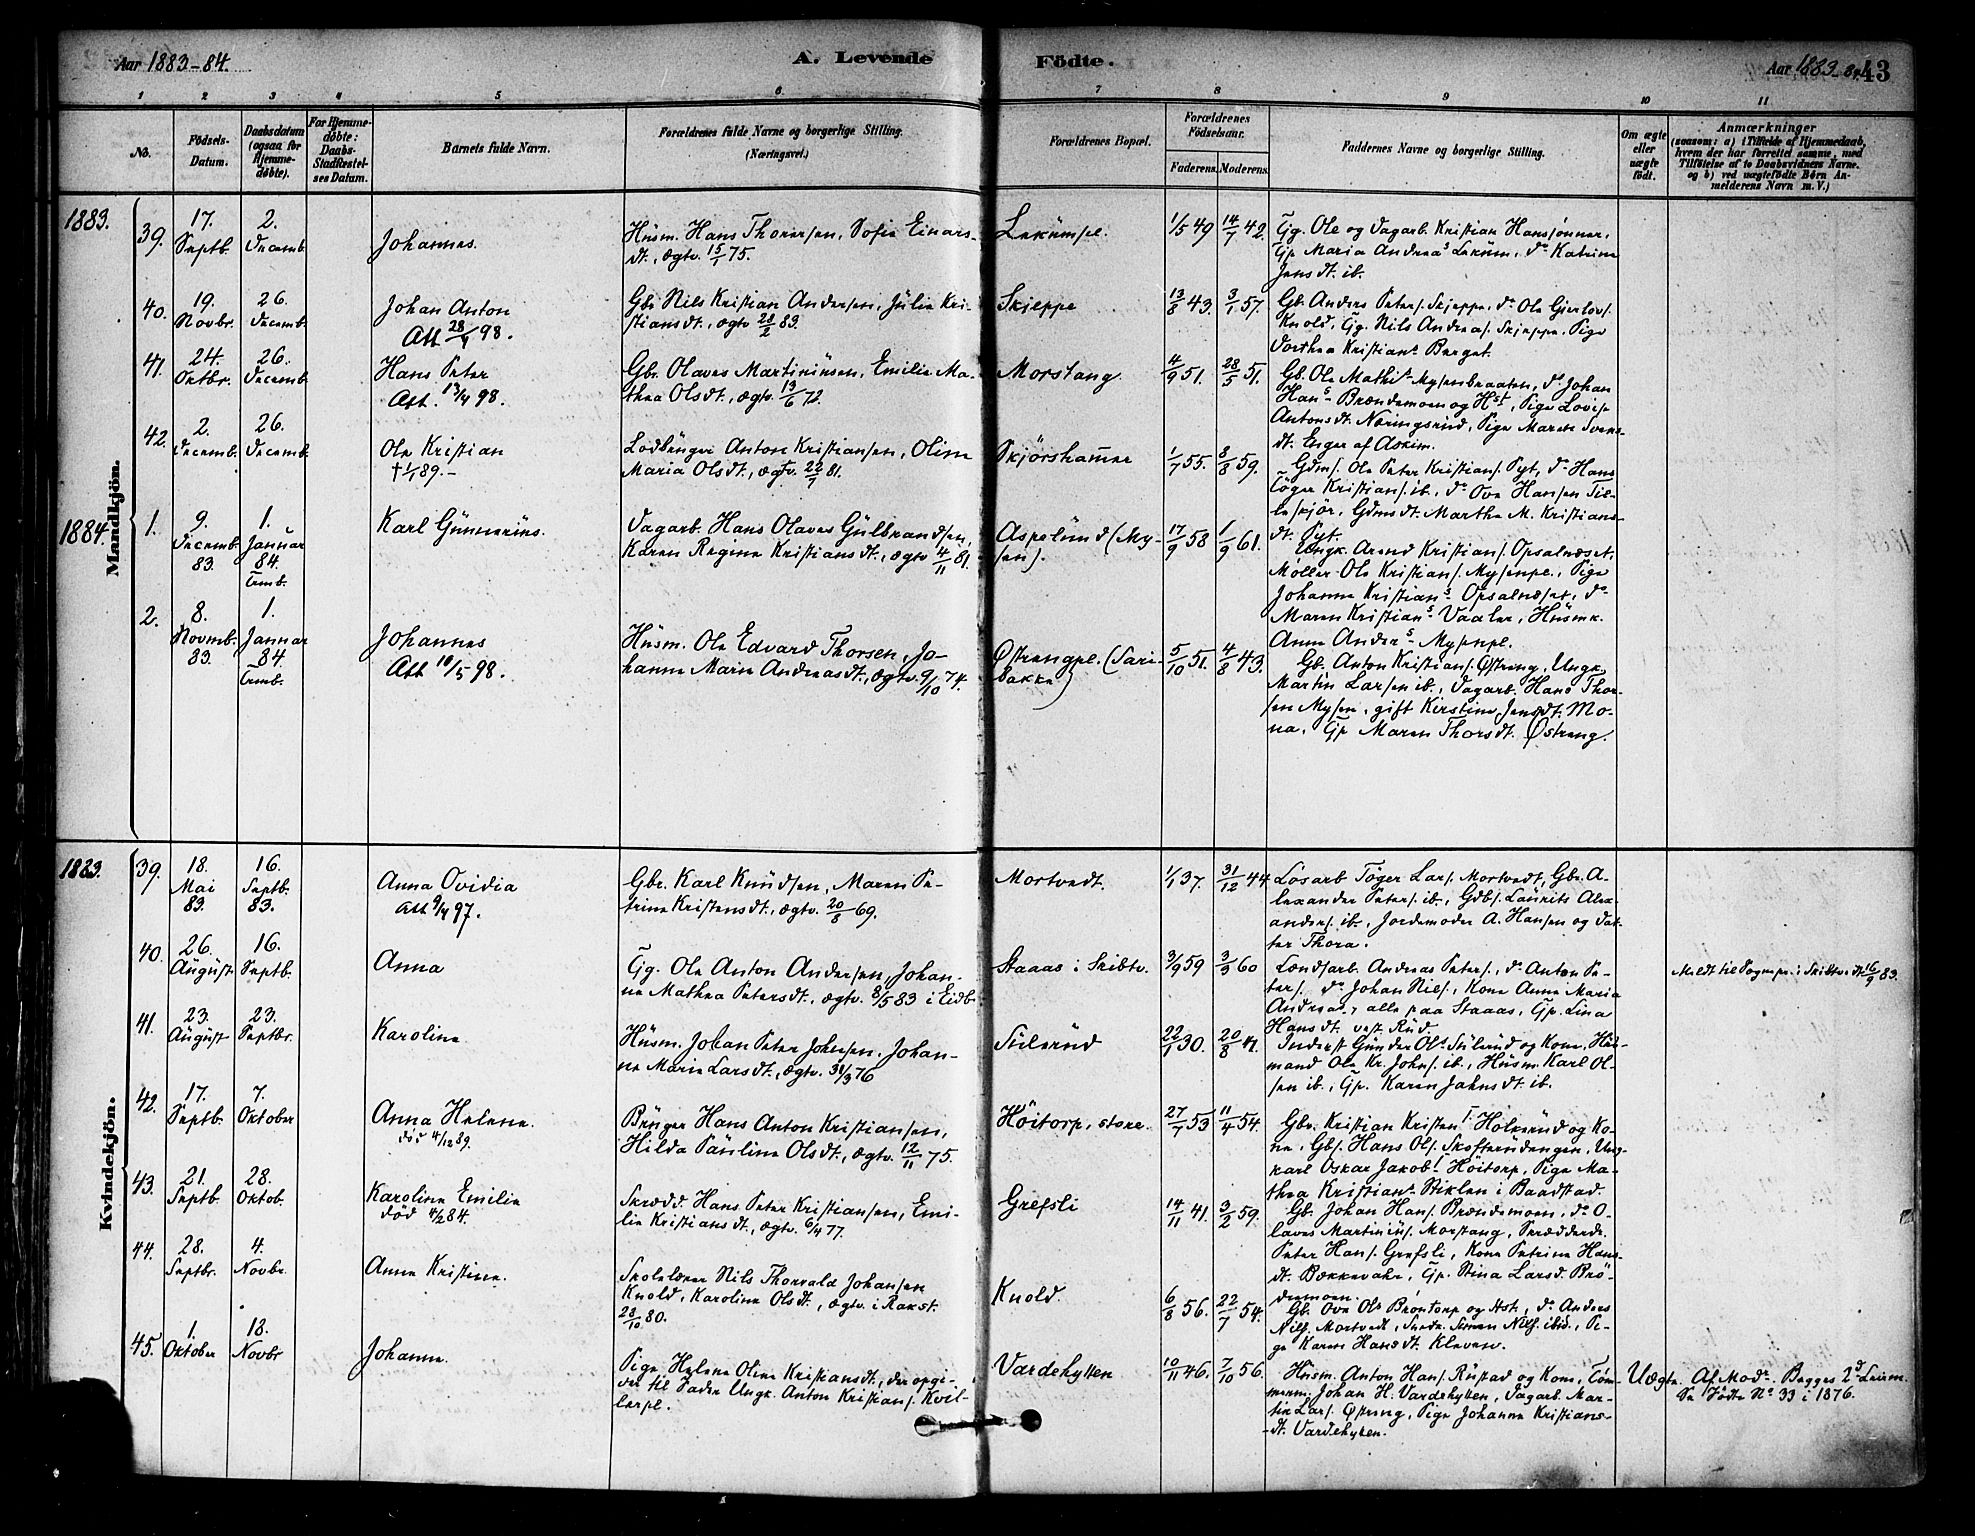 Aar 1883-84.
A. Levende Födte.
Aar 1883-84.
43
1 2 3 4 5 6 7 8 9 10 11
No.
Födsels-Datum.
Daabsdatum (ogsaa for Hjemme-döbte).
For Hjemme-döbte: Daabs-Stadfæstel-ses Datum.
Barnets fulde Navn.
Forældrenes fulde Navne og borgerlige Stilling.
(Næringsvei.)
Forældrenes Bopæl.
Forældrenes Födselsaar.
Faderens. Moderens.
Faddernes Navne og borgerlige Stilling.
Om ægte eller uægte födt.
Anmærkninger
(saasom: a) i Tilfælde af Hjemmedaab, hvem der har forrettet samme, med Tilföielse af to Daabsvidners Navne. og b) ved uægtefödte Börn An-melderens Navn m. V.)
Mandkjön.
1883.
39. 17. Septb. 2. Decemb.
Johannes.
Husm. Hans Thoresen, Sofie Einars-
dt., ægtv. 15/1 75.
Lekumpl.
1/5 49 14/7 42.
Gg. Ole og Dagarb. Kristian Hanssönner,
Gp Maria Andreas Lekum, do Katrine
Jensdt. ib.
40. 19. Novbr. 26. Decemb.
Johan Anton
Att 28/4 98.
Gbr Nils Kristian Andersen, Julie Kri-
stiansdt., ægtv 28/2 83.
Skjeppe
13/8 43. 3/1 57.
Gb. Anders Peters. Skjeppe, do Ole Gjerlovs.
Knold, Gg. Nils Andreas. Skjeppe, Pige
Dorthea Kristians Berget.
41. 24. Oktbr. 26. Decemb.
Hans Peter
Att. 13/4 98.
Gbr. Olaves Martiniusen, Emilie Ma-
thea Olsdt., ægtv. 13/6 72.
Morstang.
4/9 51. 28/5 51.
Gb. Ole Mathis Mysenbraaten, do Johan
Hans Brændemoen og Hst., Pige Lovise
Antonsdt. Næringsrud, Pige Maren Svens-
dt. Enger af Askim.
42. 2. Decemb. 26. Decemb.
Ole Kristian
† 1/1 89.
Lodbruger Anton Kristiansen, Oline
Maria Olsdt., ægtv. 22/7 81.
Skjörshammer
1/7 55. 8/8 59.
Gdm. Ole Peter Kristians. Pyt, do Hans
Töger Kristians. ib., do Ove Hansen Til-
leskjör, Gdmsdt. Marthe M. Kristians-
dt. Pyt.
1884.
1. 9. Decemb. 83. 1. Januar 84.
Karl Gunnerius.
Dagarb. Hans Olaves Gulbrandsen,
Karen Regine Kristiansdt., ægtv 4/11 81.
Aspelund (My-
sen).
17/9 58 1/9 61.
Ungk. Arend Kristians. Opsalnæset,
Möller Ole Kristians. Mysenpl., Pige
Johanne Kristians Opsalnæset, do
Maren Kristians Vaaler, Husmk.
Anne Anders Mysenpl.
2. 8. Novmb. 83. 1. Januar 84.
Johannes
Att 10/5 98.
Husm. Ole Edvard Thorsen, Jo-
hanne Marie Andreasdt., ægtv. 9/10 74.
Østrengpl. (Sari-
bakke)
5/10 51. 4/8 43.
Gb. Anton Kristians. Østreng, Ungk.
Martin Larsen ib., Dagarb. Hans Thor-
sen Mysen, gift Kirstine Jensdt. Mo-
na, Gp Maren Thorsdt. Østreng.
Kvindekjön.
1883.
39. 18. Mai 83. 16. Septb. 83.
Anna Ovidia
Att 9/4 97.
Gbr. Karl Knudsen, Maren Pe-
trine Kristensdt., ægtv. 20/8 69.
Mortvedt.
1/1 37. 31/12 44
Lösarb Töger Lars. Mortvedt, Gbr. A-
lexander Peters. ib., Gdb. Laurits Alex-
anders. ib., Jordemoder A. Hansen og Dat-
ter Thora.
40. 26. August 16. Septb.
Anna
Gg. Ole Anton Andersen, Johan-
ne Mathea Petersdt., ægtv. 8/5 83 i Eidb.
Staaas i Skibtv.
3/9 59 3/3 60
Landsarb. Andreas Peters., do Anton Pe-
ters., do Johan Nils., Kone Anne Maria
Andreas, alle paa Staaas, Gp. Lina
Hansdt. vest. Rud.
Meldt til Sognepr. i Skibtv. dt 16/9 83.
41. 23. August 23. Septbr.
Karoline
Husm. Johan Peter Johnsen, Johan-
ne Marie Larsdt., ægtv. 31/3 76
Stilerud
22/1 30. 20/8 41.
Inderst Gunder Ols Stilerud og Kone, Hus-
mand Ole Kr. Johns. ib., Husm. Karl Ol-
sen ib., Gp. Karen Jahnsdt. ib.
42. 17. Septb. 7. Oktober
Anna Helene.
död 4/12 89.
Bruger Hans Anton Kristiansen,
Hilda Pauline Olsdt., ægtv. 12/11 75.
Höitorp, store.
27/7 53 11/4 54.
Gbr. Kristian Kristens. Holmerud og Ko-
ne, Gb. Hans Ols. Skofterudengen, Ung-
karl Oskar Jakobs. Höitorp, Pige Ma-
thea Kristians Stiklen i Baadstad.
43. 21. Septb. 28. Oktob.
Karoline Emilie
död 4/2 84.
Skrædd. Hans Peter Kristiansen, Emi-
lie Kristiansdt., ægtv. 6/4 77.
Grefsli
14/11 41. 3/2 59.
Gb. Johan Hans. Brændemoen, do O-
laves Martinius. Morstang, Skrædder
Peter Hans. Grefsli, Kone Petrine Hans-
dt. Bækkevahr, Gp. Stina Larsd. Brö-
demoen.
44. 28. Septbr. 4. Novbr.
Anne Kristine.
Skolelærer Nils Thorvald Johansen
Knold, Karoline Olsdt., ægtv. i Rakst.
28/10 80.
Knold.
6/8 56. 22/7 54.
Gb. Ove Ols Bröntorp og Hst, do Anders
Nils. Mortvedt, Simen Nils. ibid., Pi-
ge Karen Hansdt. Kleven.
45. 1. Oktober 18. Novbr
Johanne.
Pige Helene Oline Kristiansdt., der opgi-
ver til Fader Ungk. Anton Kristians. Kvil-
lerpl.
Vardehytten
10/11 46. 7/10 56.
Husm. Anton Hans. Rustad og Kone, Töm-
merm. Johan H. Vardehytten, Dagarb. Mar-
tin Lars. Østreng, Pige Johanne Kristians-
dt. Vardehytten.
Uægte. Af Mod. Begges 2d Leierm.
Se Födte No 33 i 1876.